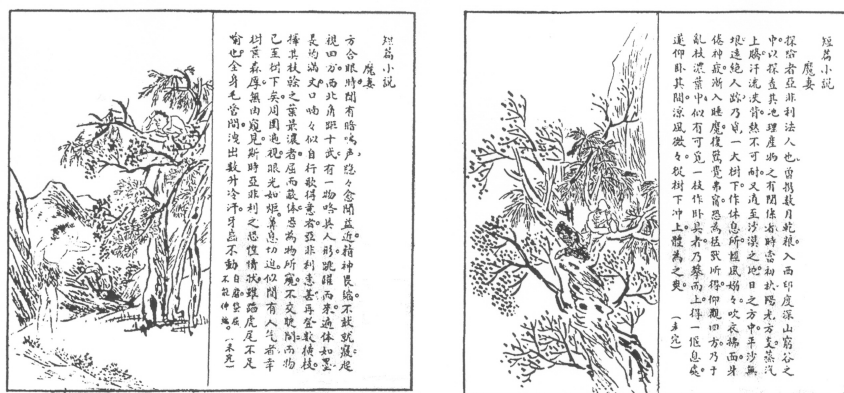 短篇小說
魔妻
探險者亞非利法人也。曾携數月乾粮。入西印度深山窮谷之
中。以探查其地理產物之有關係者。時當初秋。陽光方炙。蒸汽
上騰。汗流浹背。熱不可耐。又須至沙漠之地。日之方中。平沙無
垠。遠絕人跡。乃覓一大樹下作休息所。輕風嫋々。吹衣拂面。身
倦神疲。漸入睡魔。復驚覺弗寧。恐為猛獸所得。仰觀四方。乃于
亂枝濃葉中。似有可覓一枝作卧具者。乃攀而上。得一偃息處。
遂仰卧其間。涼風微々。從樹下冲上。體為之爽。(未完)
短篇小說
魔妻
方合眼時。間有暗嗚声。隐々愈聞益近。精神畏縮。不敢就寢。起
視四方。西北角距十武。有一物略具人形。跳躍而來。遍体如墨
長約滿丈。口喃々似自行歌得意者。亞非利恚甚。再登數橫枝。
擇其枝幹之葉最濃者。屈而蔽体。恐為物所窺。不交睫間。而物
已至樹下矣。周圍遍視。眼光如炬。鼻息切迫。似聞有人气者。幸
樹葉森厚。無由窺見。斯時亞非利之恐惶情狀。雖蹈虎尾不足
喻也。全身毛管間洩出數升冷汗。牙齒不動 不能伸縮。(未完)